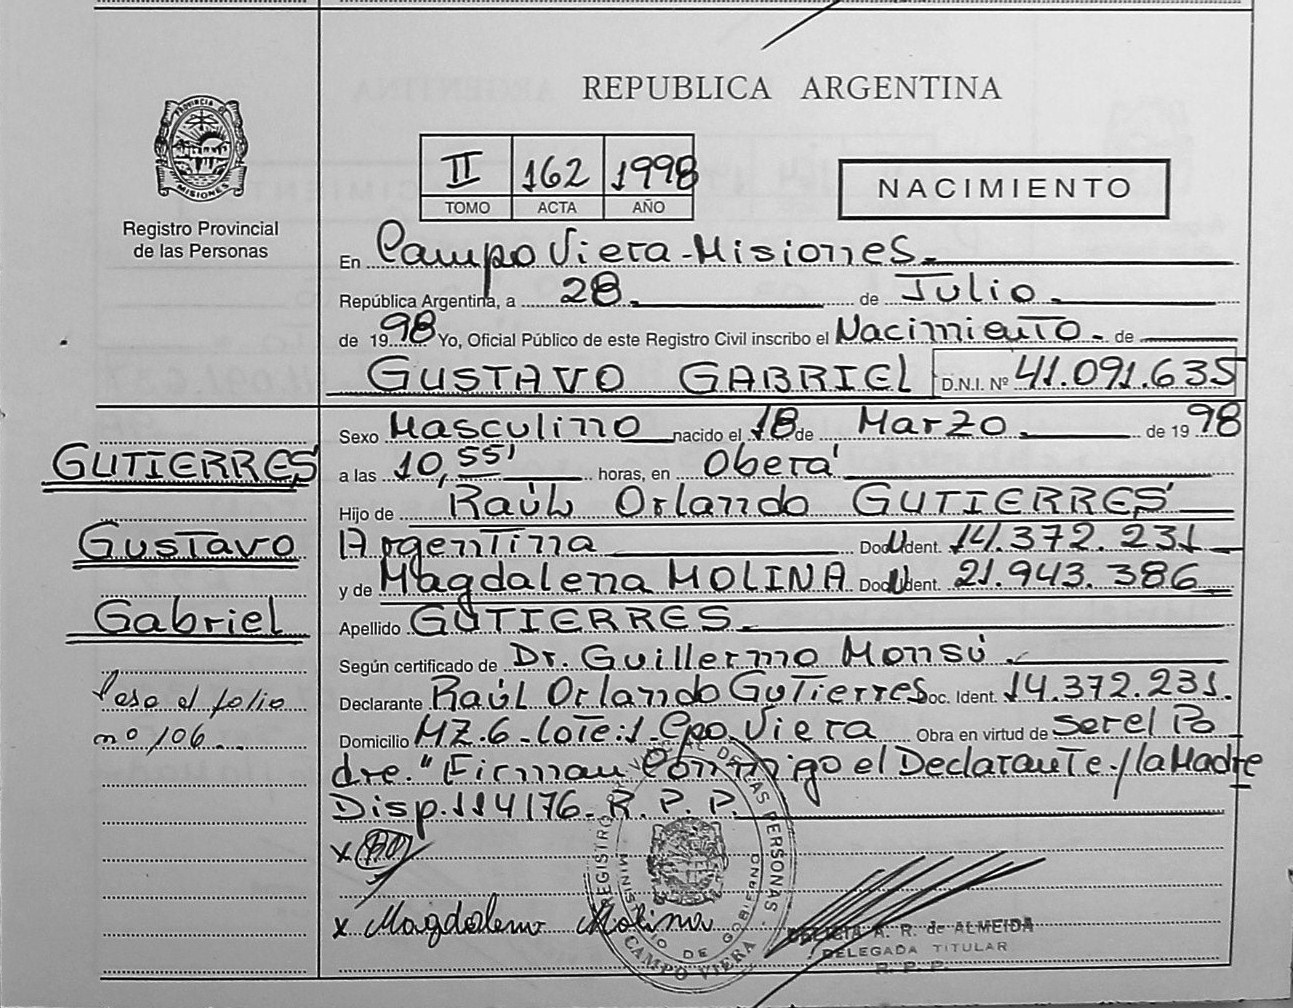 REPUBLICA ARGENTINA
PROVINCIA DE
MISIONES
Registro Provincial
de las Personas
II 162 1998
TOMO ACTA AÑO
NACIMIENTO
En Campo Viera - Misiones.
República Argentina, a 28. de Julio.
de 19 98 Yo, Oficial Público de este Registro Civil inscribo el Nacimiento. de
GUSTAVO GABRIEL D.N.I. Nº 41.091.635
Sexo Masculino nacido el 18 de Marzo de 19 98
a las 10,55' horas, en Oberá
Hijo de Raúl Orlando GUTIERRES
Argentina Doc. U Ident. 14.372.231
y de Magdalena MOLINA Doc. U Ident. 21.943.386
Apellido GUTIERRES.
Según certificado de Dr. Guillermo Monsú.
Declarante Raúl Orlando Gutierres Doc. Ident. 14.372.231.
Domicilio MZ.6-Lote:1-Cpo. Viera Obra en virtud de ser el Pa
dre." Firman Conmigo el Declarante./la Madre
Disp.114/76. R. P. P.
x
x Magdalena Molina
GUTIERRES
Gustavo
Gabriel
Pasa al folio
nº 106
REGISTRO PROVINCIAL DE LAS PERSONAS
MINISTERIO DE GOBIERNO
CAMPO VIERA
A. R. de ALMEIDA
DELEGADA TITULAR
R. P. P.